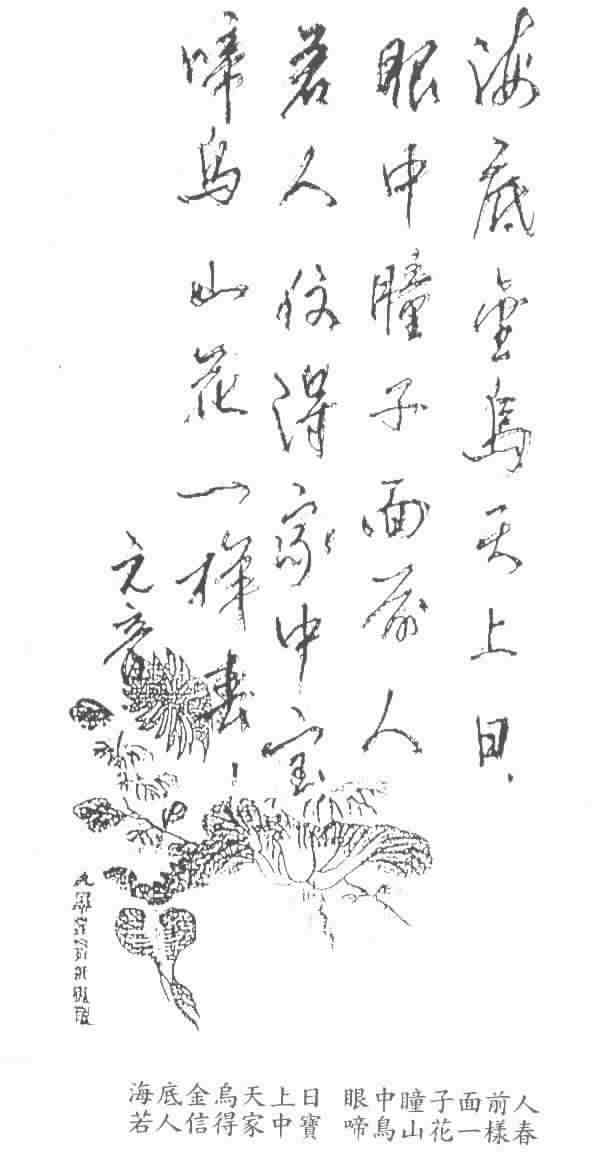 海底金烏天上日
眼中瞳子面前人
若人信得家中寶
啼鳥山花一樣春
元音
海底金烏天上日 眼中瞳子面前人
若人信得家中寶 啼鳥山花一樣春